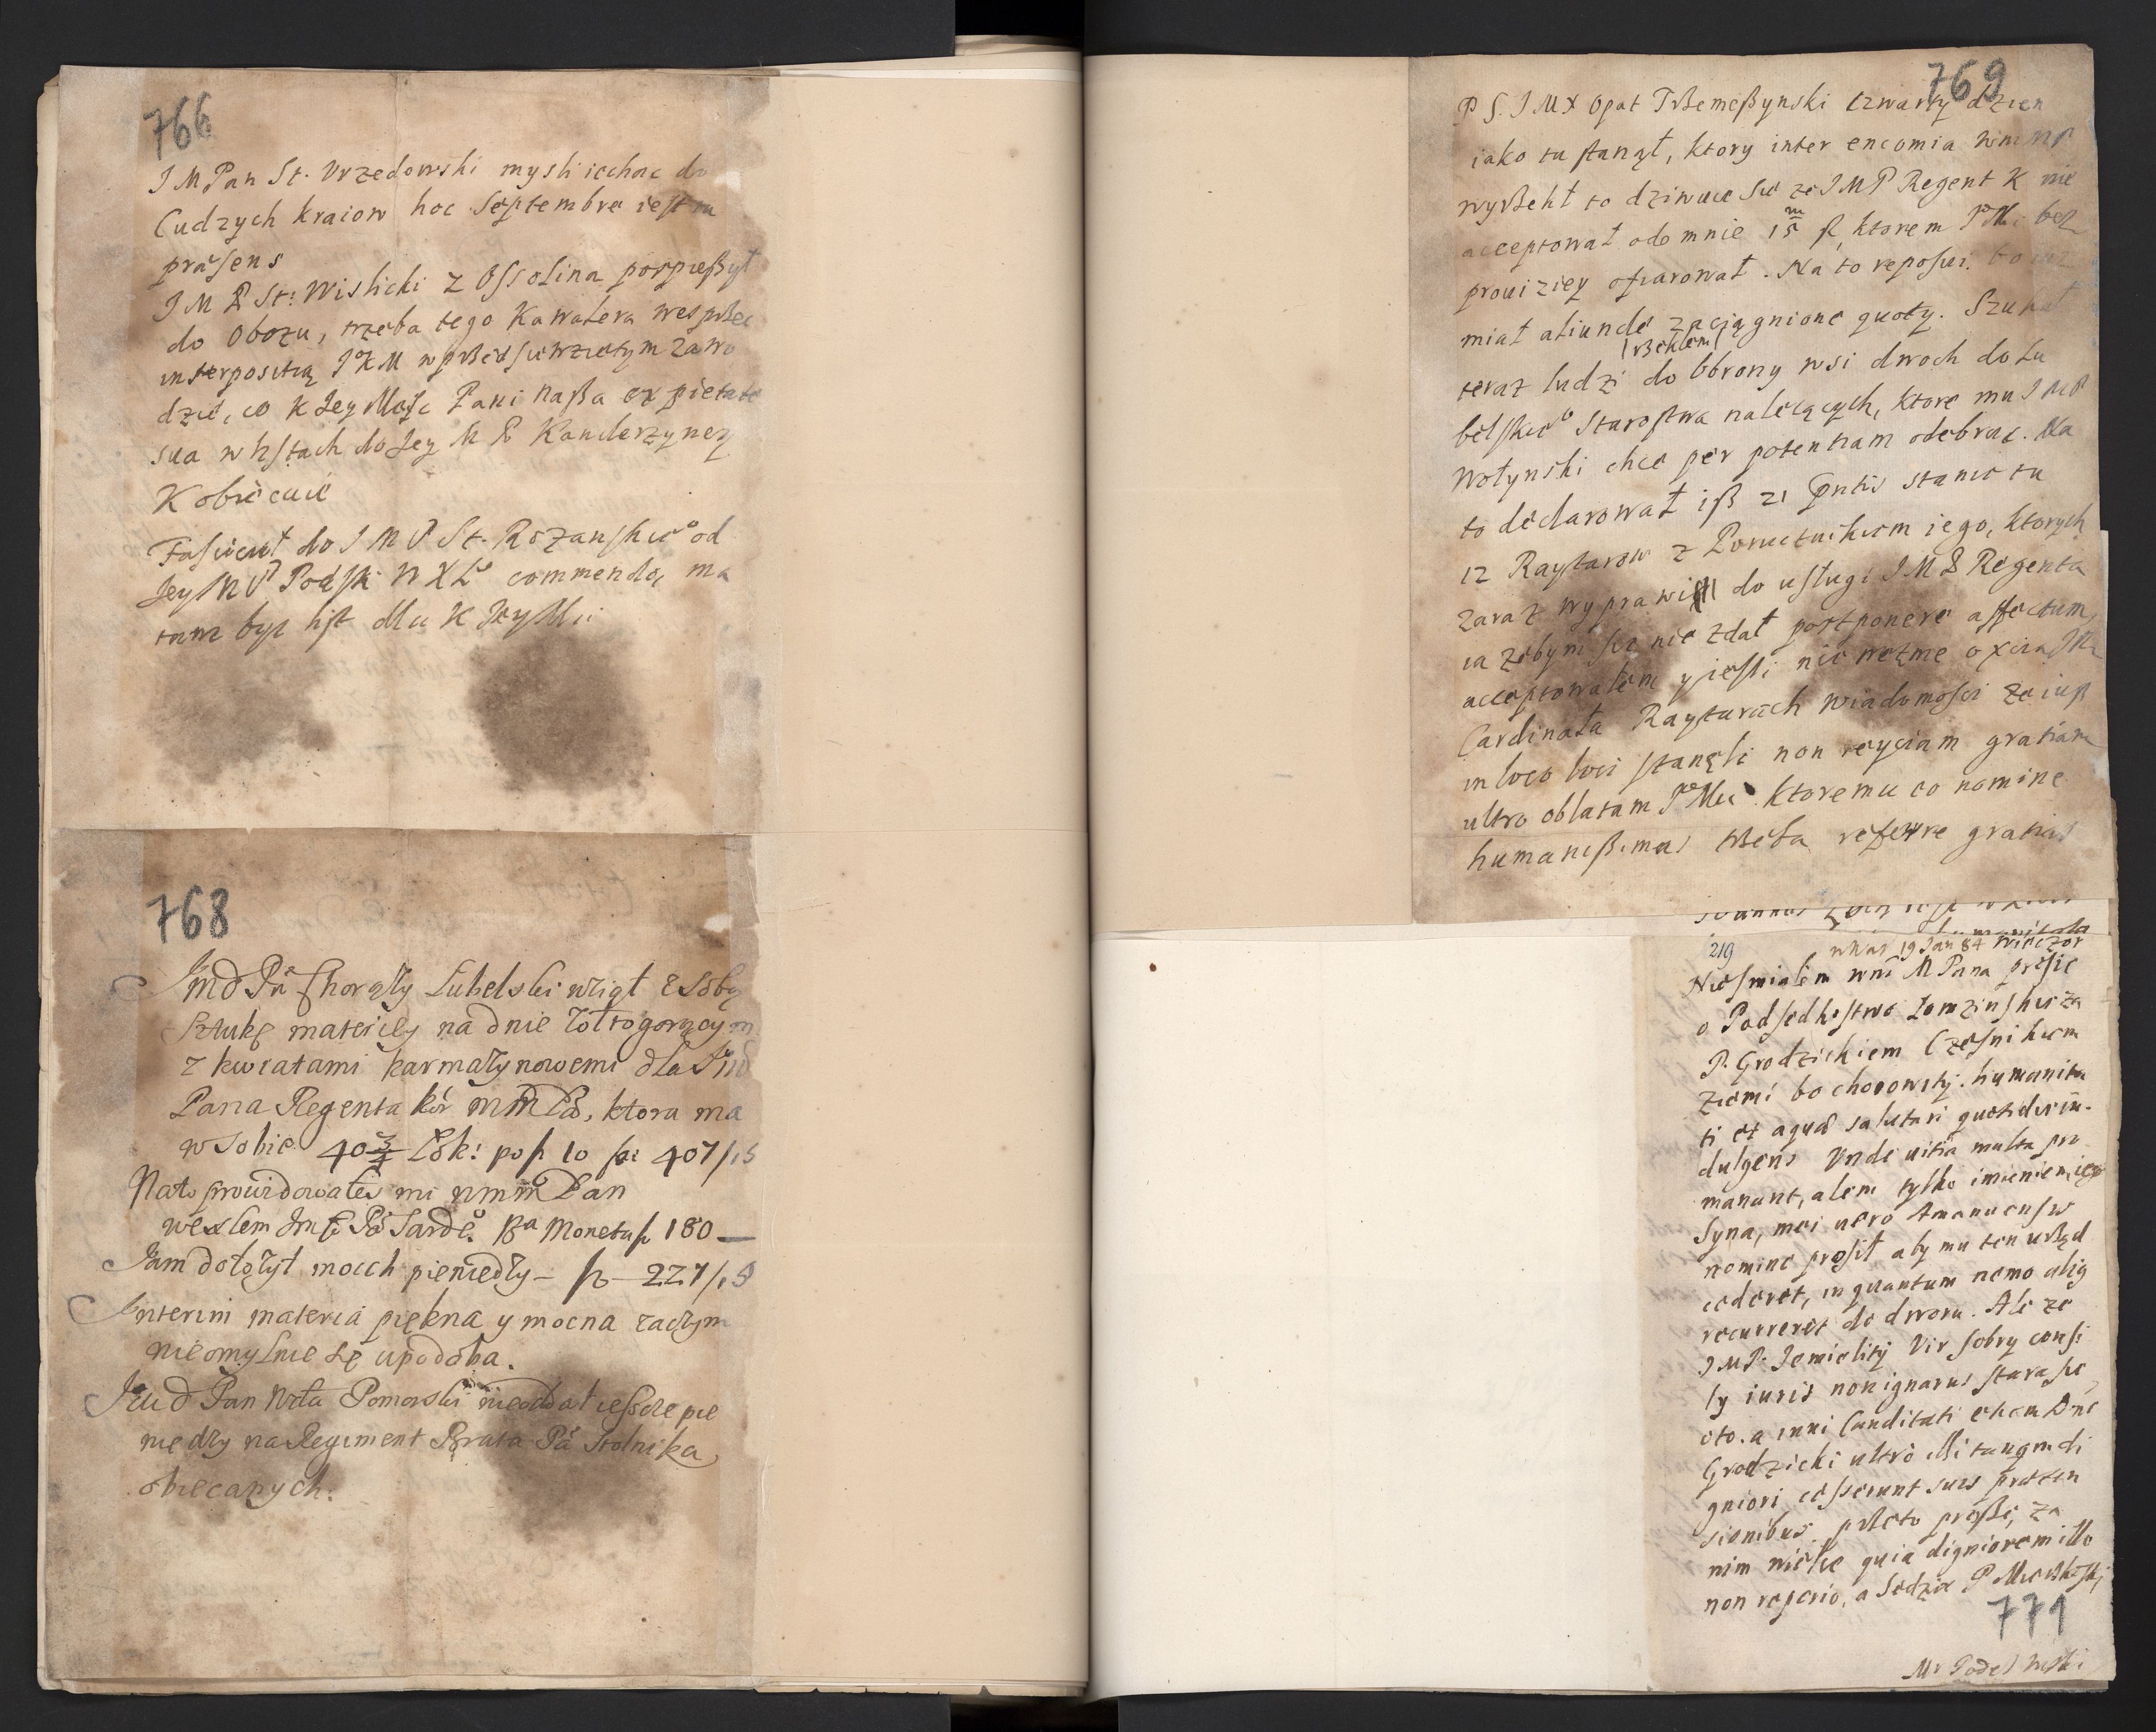 766
J M Pan St. Vrzedowski mysli iechac do
Cudzych kraiow hoc Septembre iest tu
præsens
J M P St: Wislicki z Ossolina pospießył
do Obozu, trzeba tego Kawalera wesprzec
interpositią JKM w przedsiewziętym zawo
dzie, co K Jey Mość Pani naßa ex pietate
sua w listach do Jey M P Kanclerzyney
K obiecuie
Fascicuł do J M P St. Rozanskieº od
Jey M P Podski W X Lº commendo, ma
tam byc list dla K Jey Mci
768
Jmd Pā Chorąży Lubelski wziął z soby
sztukę materiey na dnie żółtogorącym
z kwiatami karmazynowemi dla Jmd
Pana Regenta kor m m Pā, ktora ma
w sobie 40 3/4 Łok: po fl 10 fac 407/15
Na to prowidowałes mi n m m Pan
wexlem Jm Pā Sarde. Ba Moneta fl 180 —
Jam dołożył moich pieniedzy — fl — 227/15
Interim materia piękna y mocna zaczym
nieomylnie sę upodoba.
Jmd Pan Wda Pomorski nieoddał ießcze pie
niedzy na Regiment Brata Pā Stolnika
obiecanych.
769
P S. J M X Opat Trßemeßynski czwarty dzien
iako tu stanął, ktory inter encomia Wm
wyßekł to dziwuie sie ze J M P Regent K nie
acceptował odo mnie 15 m fl, ktorem JºMci bez
prouiziey ofiarował. Na to reposui, to iuz
miał aliunde zaciągnione quoty. Szukał
(rßekłem)
teraz ludzi do obrony wsi dwoch do Lu
belskieº Starostwa należących, ktore mu J M P
Wołynski chce per potentiam odebrac. Na
to declarował iß 21 pntis stanie tu
12 Raytarow z Porucznikiem iego, ktorych
zaraz wyprawi do usługi J M P Regenta
ia zebym sie nie zdał postponere affectum,
acceptowałem y iesli nie wezme o xcia JM
Cardinała Raytarach wiadomosci ze iuß
in loco loci stanęli non reyciam gratiam
ultro oblatam JºMci. Ktoremu eo nomine
humanißimas trßeba referre gratias
219
wkar 19 Jan 84 wieczor
Nie smiałem wm M Pana prosic
o Podsedkostwo Łomzinskie za
P. Grodzickiem Czesnikiem
Ziemi bochorowsky. humanita
ti et aquæ salutari quotidie in
dulgens Vnde uitia multa pro
manant, alem tylko imieniem iego
Syna, mei uero Amanuensis
nomine prosił aby mu ten urßąd
cederet, in quantum nemo alius
recurreret do dworu. Ale ze
J M P. Jemielity Vir sobry consi
ly iuris non ignarus stara sie
oto. a inni Canditati etiam Dns
Grodzicki ultro illi tanqm di
gniori cesserunt suis preten
sionibus, pßeto proßę, za
nim niesię quia digniorem illo
non reperio, a Sedzia P
771